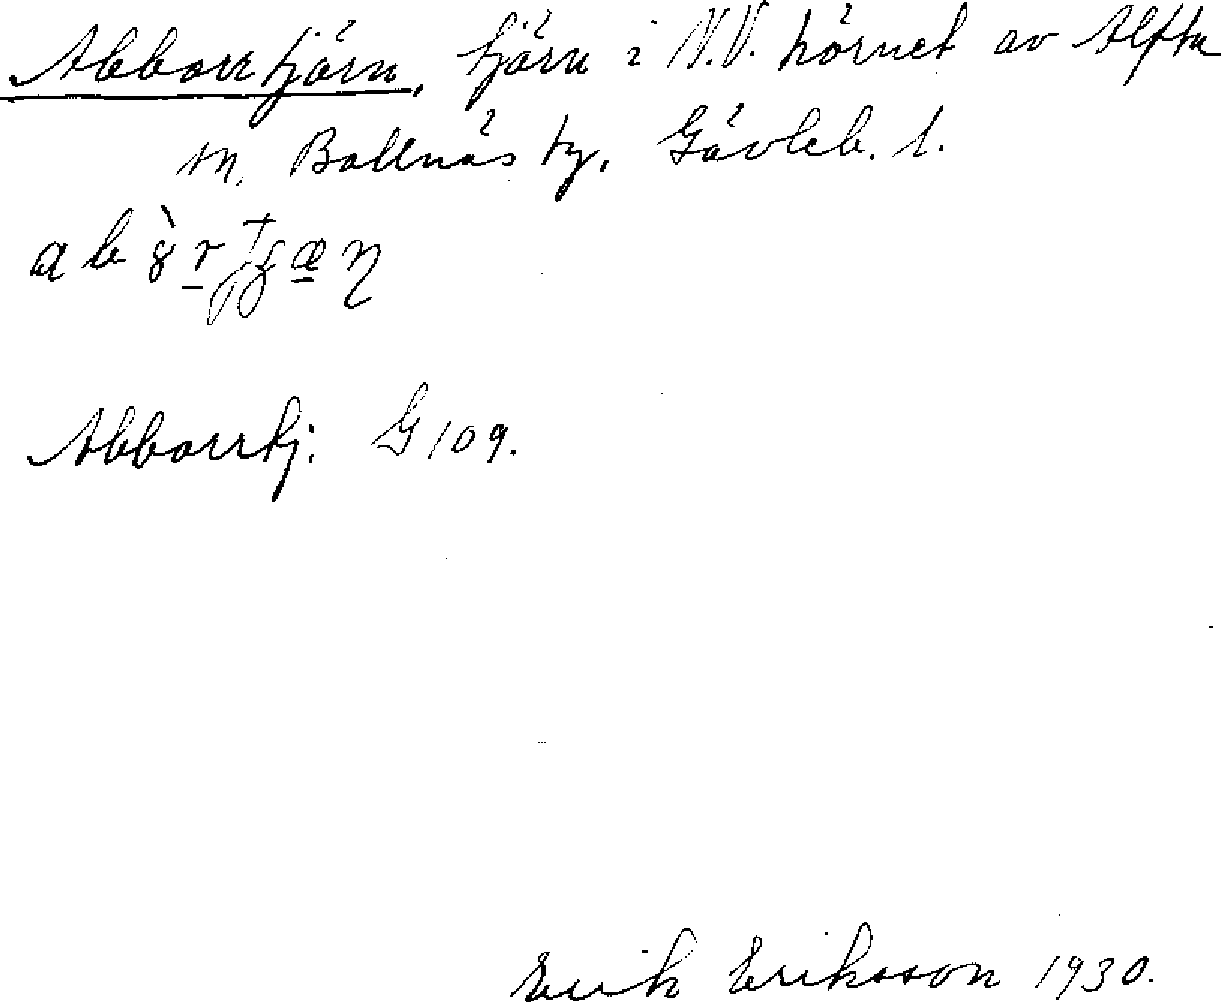 Abborrtjärn, tjärn i N.V. hörnet av Alfta
sn. Bollnäs tg. Gävleb. l.
Abborrtj. G 109.
Erik Eriksson 1930.